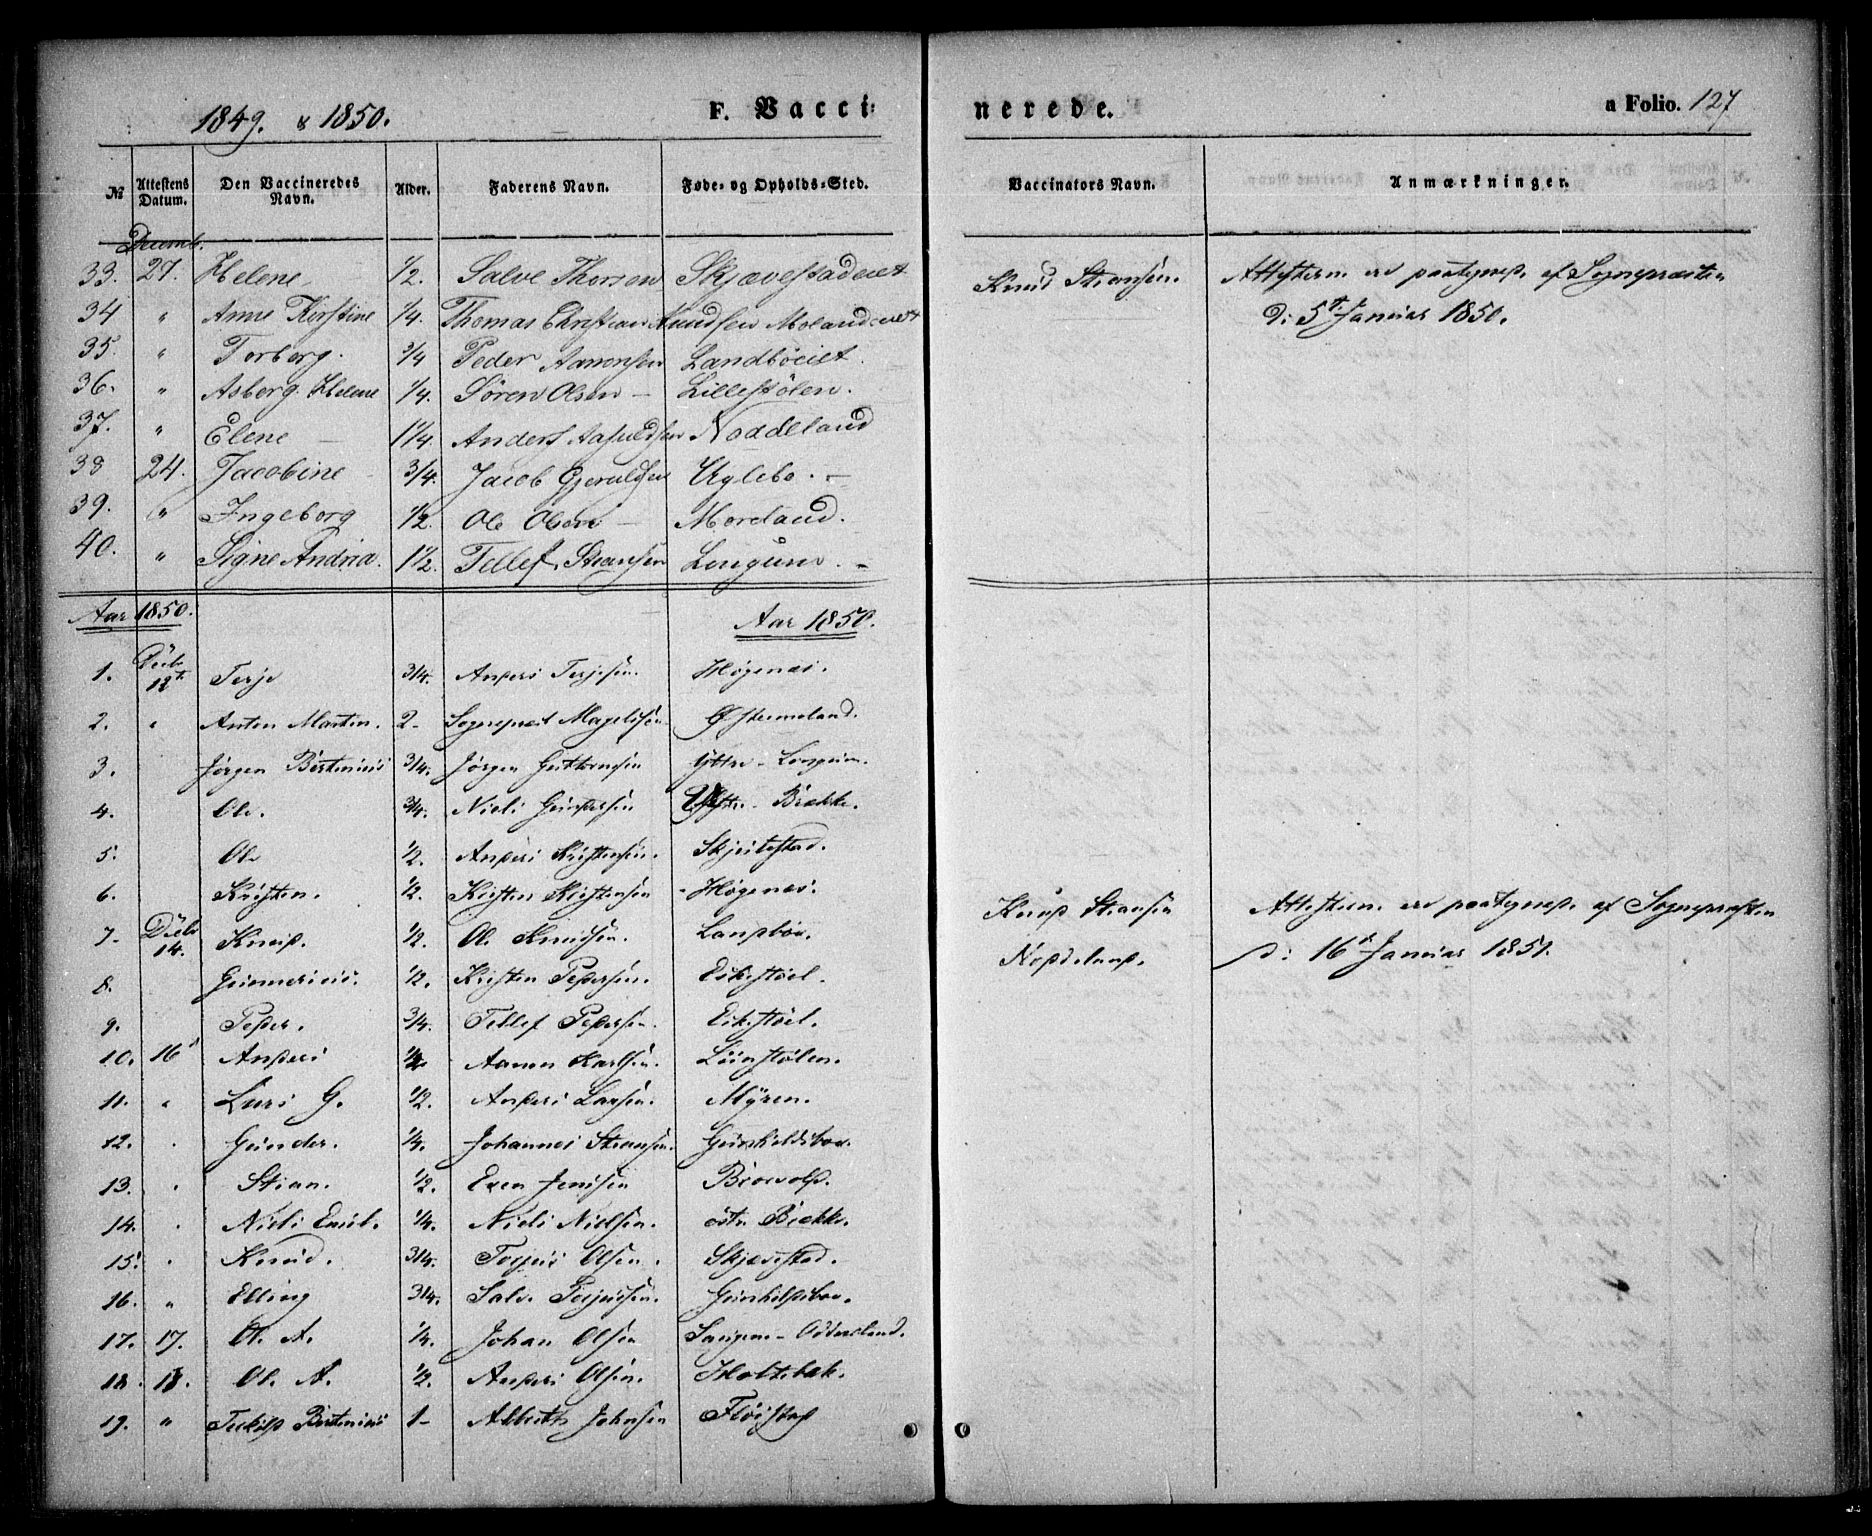 1849. & 1850. F. Vacci: nerede. a Folio. 127
№ Attestens Datum. Den Vaccineredes Navn. Alder. Faderens Navn. Føde- og Opholds-Sted. Vaccinators Navn. Anmærkninger.
Decemb.
33. 27. Helene 1/2. Salve Thorsen Skjævestad Knud Steansen. Attesterne ere paategnede af Sognepræsten
34 " Anne Kirstine 1/4. Thomas Christian Knudsen Moland d: 5te Januar 1850.
35. " Torberg. 3/4 Peder Aanonsen Landbøeiet.
36. " Asberg Helene 1/4. Sören Olsen - Lillestølen.
37. " Elene - 1 1/4. Anders Aasuldsen Noddeland
38 24. Jacobine - 3/4. Jacob Gjeruldsen Uglebo. -
39. " Ingeborg 1/2. Ole Olsen - Moreland.
40. " Signe Andria. 1 1/2. Tellef Steansen Longum. -
Aar 1850. Aar 1850.
1. Decb. 12t Terje 3/4. Anders Terjesen. Høgenæs.
2. " Anton Martin. 2- Sognepræst Magelssen Østermoland.
3. Jörgen Bertinius 3/4. Jörgen Guttormsen Yttre- Longum.
4. Ole. 3/4. Niels Gundersen Østre- Brække.
5. Ole 1/2. Anders Kristensen. Skjeitestad.
6. Kristen. 1/2. Kristen Kristensen - Høgenæs.
7- Decb 14. Knud. 1/2. Ole Knudsen. Landbøe. Knud Steansen Attesterne ere paategnede af Sognepræsten
8. Gunnerius. 1/2. Kristen Pedersen. Eikestøel. Noddeland. d: 16de Januar 1851.
9. Peder. 3/4. Tellef Pedersen. Eikestøel.
10. 16 Anders Aanon Karlsen. Lünstølen.
11. " Lars G. 1/2. Anders Larsen. Myren.
12. " Gunder. 1/4. Johannes Steansen. Gunhildsboe.
13. " Stian. 1/2. Even Jensen
14. " Niels Emil. 1/4. Niels Nielsen. østr Brække.
15. " Knud. 3/4. Torjus Olsen. Skjævestad.
16. " Elling 3/4. Salve Torjussen. Gunhildsboe.
17. 17. Ole A. 1/4. Johan Olsen Saugene- Odderland.
18. 18. Ole A. 1/2. Anders Olsen. Holtebak.
19. " Terkild Bertinius 1- Alberth Johnsen Fløistad